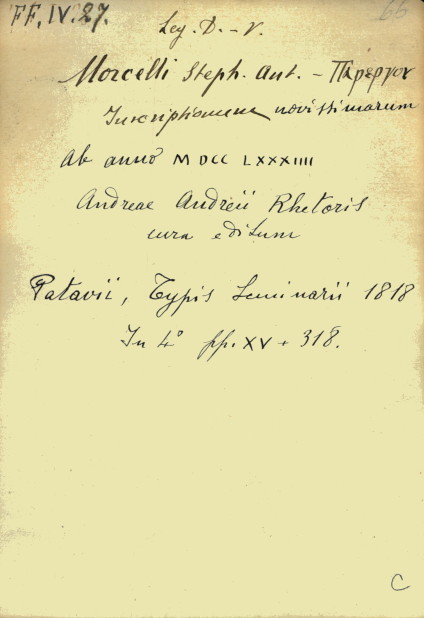 FF. IV. 27.
66
Leg. D. - V.
Morcelli Steph. Ant. - Πάρεργον
Inscriptionum novissimarum
Ab anno MDCCLXXXIIII
Andreae Andreii Rhetoris
cura editum
Patavii, Typis Seminarii 1818
In 4° pp. XV + 318.
C